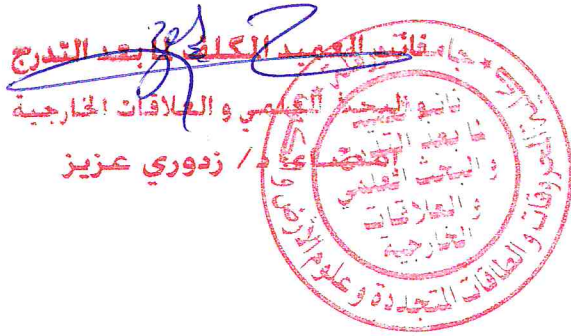 نائب العميد المكلف لما بعد التدرج
والبحث العلمي و العلاقات الخارجية
امضاء د/ زدوري عزيز
جامعة
نائب العميد
ما بعد التدرج
و البحث العلمي
و العلاقات
الخارجية
المحروقات و الطاقات المتجددة و علوم الأرض و